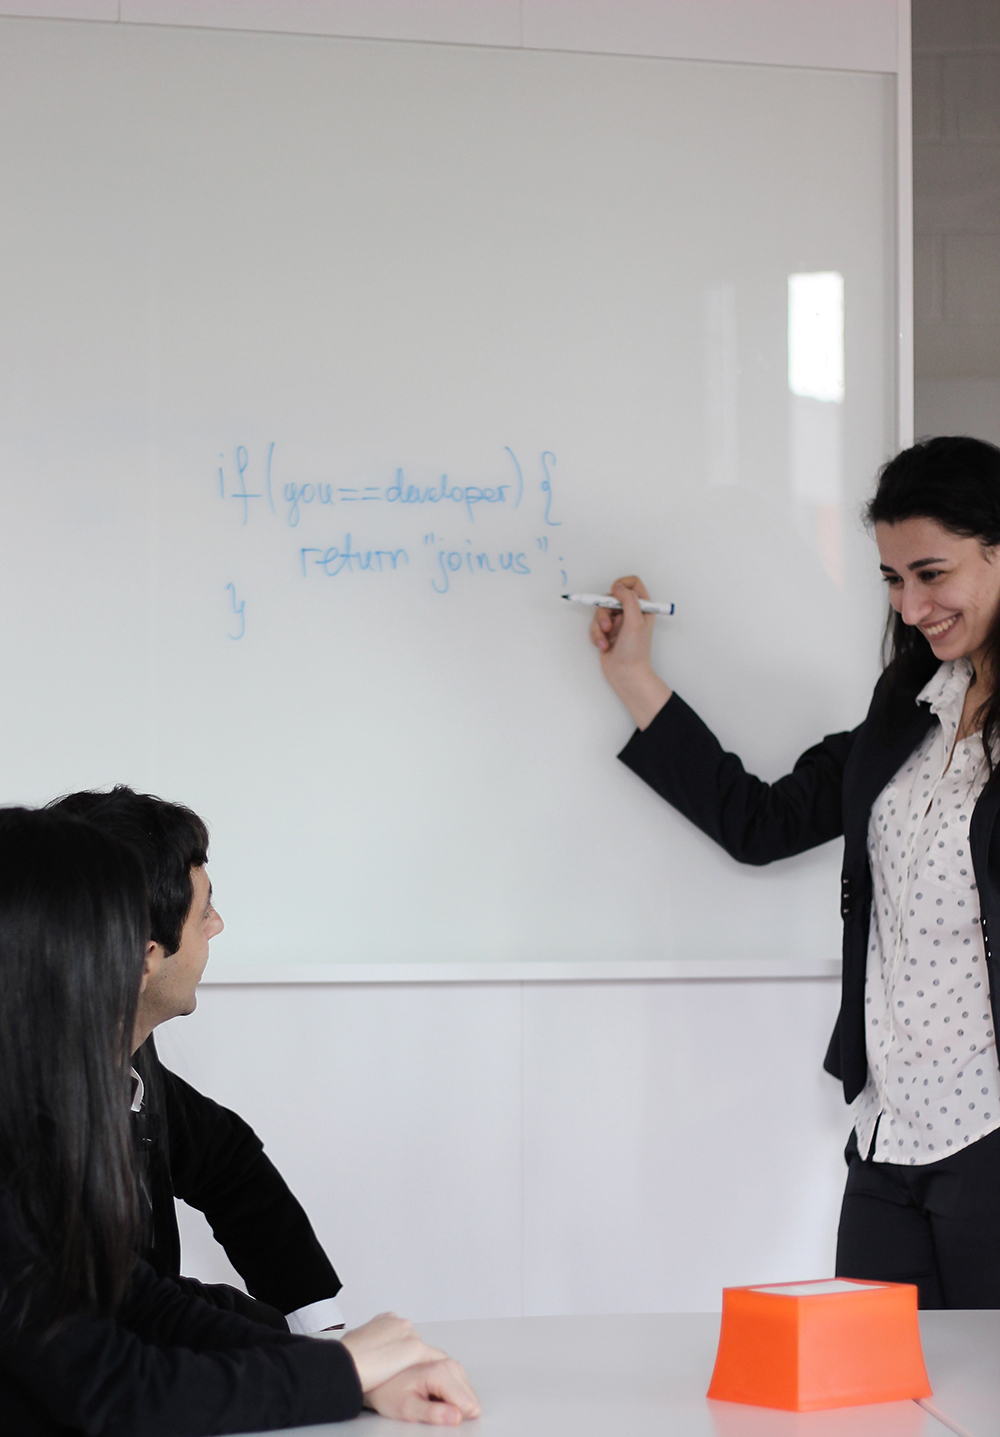 if(you==developer){
return "join us";
}